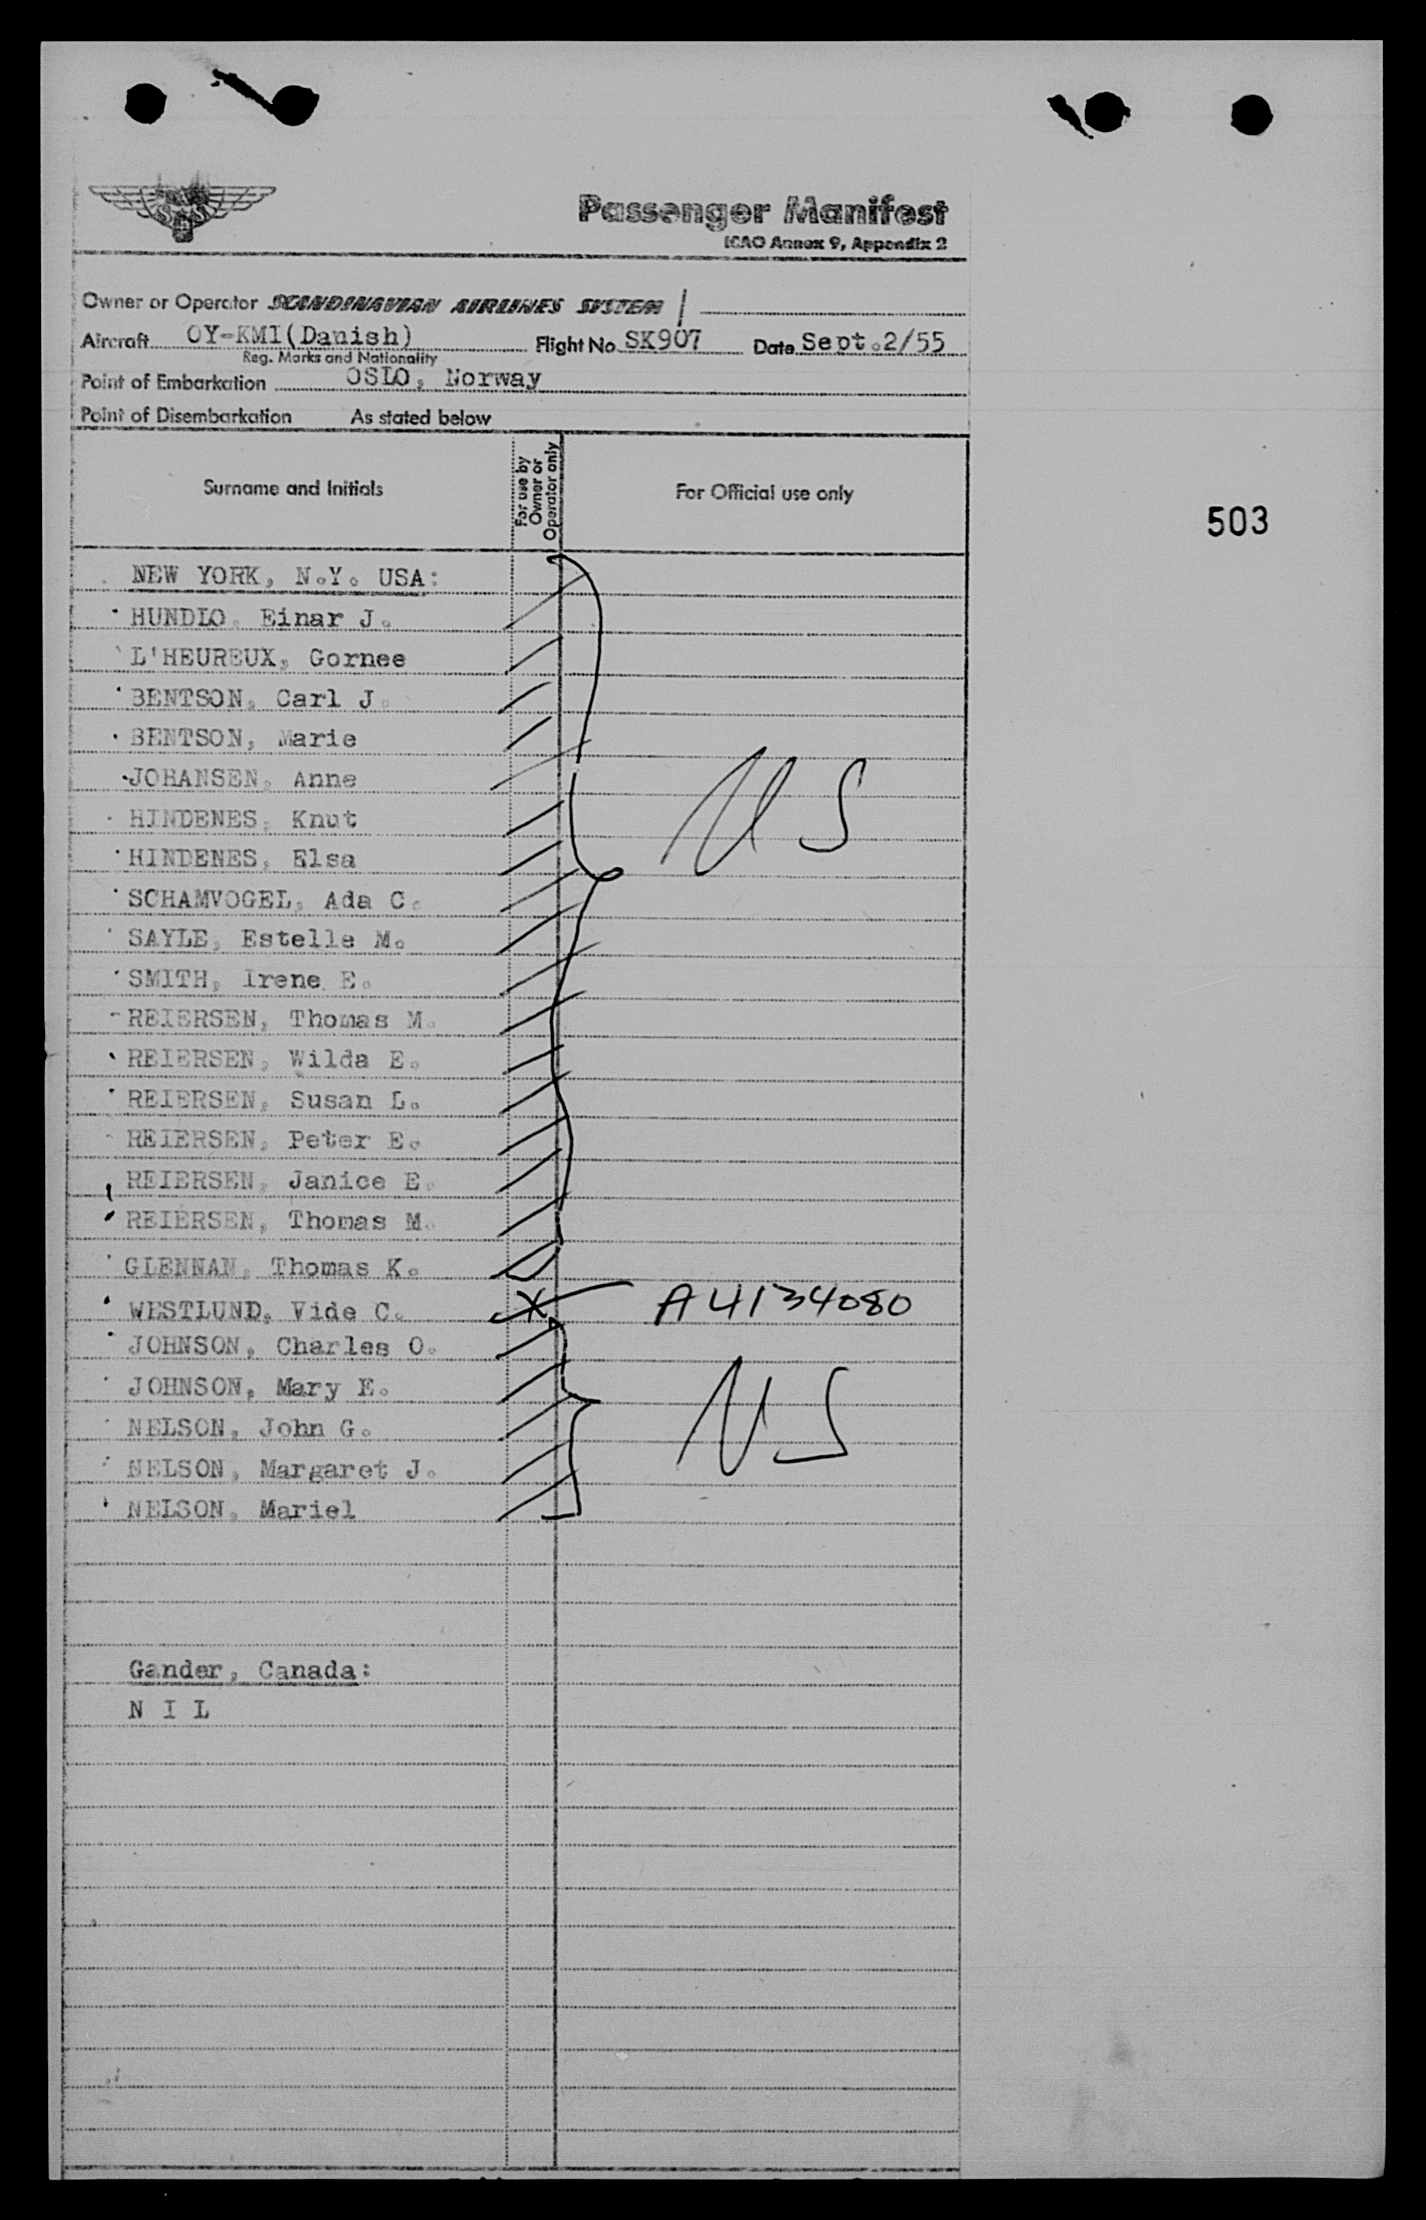 SAS
Passenger Manifest
ICAO Annex 9, Appendix 2
Owner or Operator SCANDINAVIAN AIRLINES SYSTEM
Aircraft OY-KMI(Danish) Flight No SK907 Date Sept.2/55
Reg. Marks and Nationality
Point of Embarkation OSLO, Norway
Point of Disembarkation As stated below
Surname and Initials For use by Owner or Operator only For Official use only
503
NEW YORK, N.Y. USA:
HUNDLO, Einar J.
L'HEUREUX, Gornee
BENTSON, Carl J.
BENTSON, Marie
JOHANSEN, Anne
HINDENES, Knut
US
HINDENES, Elsa
SCHAMVOGEL, Ada C.
SAYLE, Estelle M.
SMITH, Irene E.
REIERSEN, Thomas M.
REIERSEN, Wilda E.
REIERSEN, Susan L.
REIERSEN, Peter E.
REIERSEN, Janice E.
REIERSEN, Thomas M.
GLENNAN, Thomas K.
WESTLUND, Vide C. X A4134080
JOHNSON, Charles O.
JOHNSON, Mary E.
NELSON, John G. US
NELSON, Margaret J.
NELSON, Mariel
Gander, Canada:
N I L